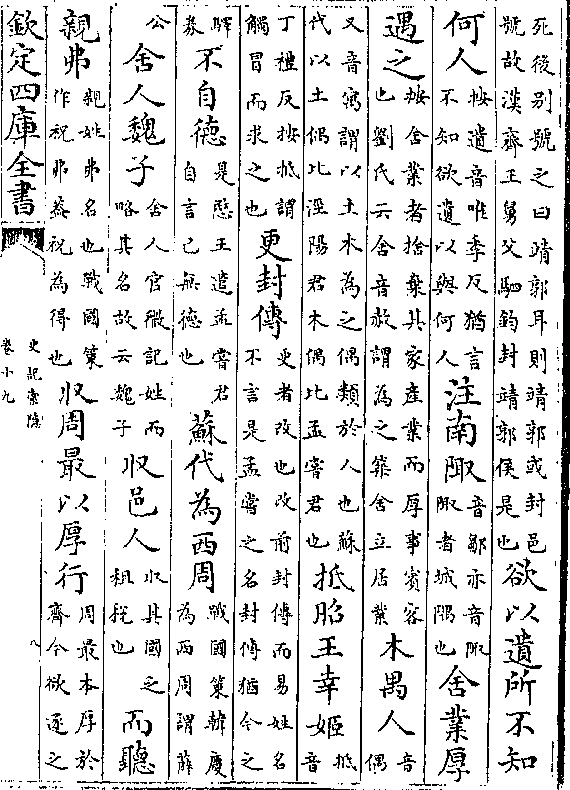 死後别號之曰靖郭耳則靖郭或封邑號故漢齊王舅父駟鈞封靖郭侯是也欲以遺所不知
何人按遺音唯季反猶言不知欲遺以與何人注南陬音鄒亦音陬陬者城隅也舍業厚
遇之按舍業者捨棄其家產業而厚事賓客也劉氏云舍音赦謂為之築舍立居業木禺人音偶
又音寓謂以土木為之偶類於人也蘇代以土偶比涇陽君木偶比孟嘗君也抵昭王幸姬抵音
丁禮反按抵謂觸冒而求之也更封傳更者改也改前封傳而易姓名不言是孟嘗之名封傳猶今之
驛券不自德是愍王遣孟嘗君自言已無德也蘇代為西周戰國策韓慶為西周謂薛
公舍人魏子舍人官微記姓而略其名故云魏子收邑人收其國之租税也而聽
親弗親姓弗名也戰國策作祝弗葢祝為得也收周最以厚行周最本厚於齊今欲逐之
欽定四庫全書
史記索隱
卷十九
八